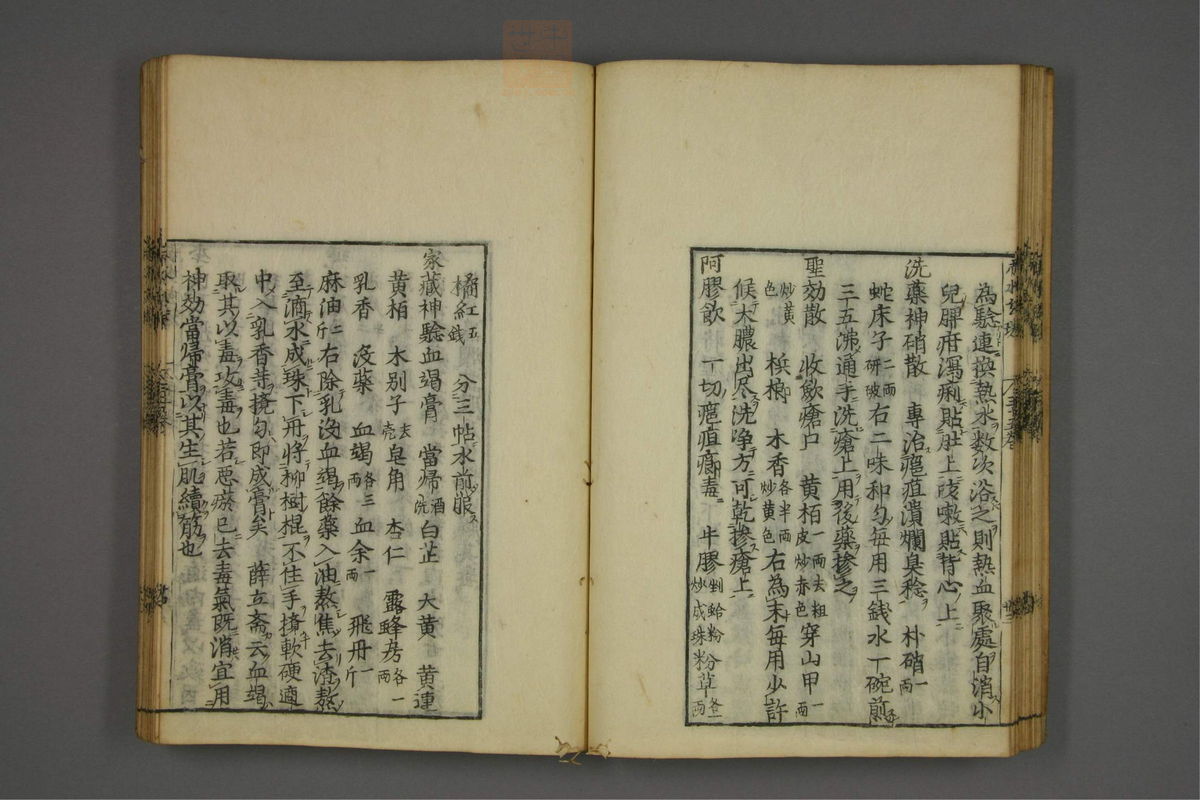 為驗連換熱水数次浴之則熱血聚處自消小
兒脾疳瀉痢貼肚上咳嗽貼背心上
洗藥神硝散　專治疽潰爛臭稔　朴硝一両
蛇床子二両研破右二味和匀每用三銭水一碗煎
三五沸通手洗瘡上用後藥摻之
聖効散　收歛瘡口　黄栢一両去粗皮炒赤色穿山甲一両
炒黄色　梹榔　木香各半両炒黄色右為末每用少許
候大膿出尽洗浄方可乾摻瘡上
阿膠飲　一切疽癤毒　牛膠剉蛤粉炒成珠粉草各一両
橘紅五銭　分三帖水煎服
家藏神驗血竭膏　當帰酒洗白芷　大黄　黄連
黄栢　木別子去壳皂角　杏仁　露蜂房各一両
乳香　没藥　血竭各三両血余一両　飛丹一斤
麻油二斤右除乳没血竭餘藥入油熬焦去渣熬
至滴水成珠下丹将柳樹棍不住手攪軟硬適
中入乳香等攪匀即成膏矣　薛立斋云血竭
取其以毒攻毒也若惡瘀已去毒氣既消宜用
神効當帰膏以其生肌續筋也